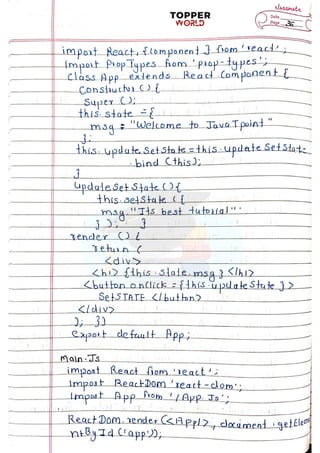 classmate
TOPPER
WORLD
Date
Page 36
import React, {Component } from 'react';
Import PropTypes from 'prop-types';
Class App extends React Component {
Constructor () {
Super ();
this. state = {
msg : "Welcome to JavaTpoint"
};
this. update SetState = this. update SetState
. bind (this);
}
update Set State () {
this. setstate ({
msg. "Its best tutorial"
} ); }
render () {
return (
<div>
<h1> {this. state. msg } </h1>
<button onclick = {this update State } >
SetSTATE </button>
</div>
); }}
export default App;
Main. Js
import React from 'react';
Import ReactDom 'react-dom';
Import App from './App. Js';
React Dom. render (<App/>, document. getEleme
ntById ('app'));